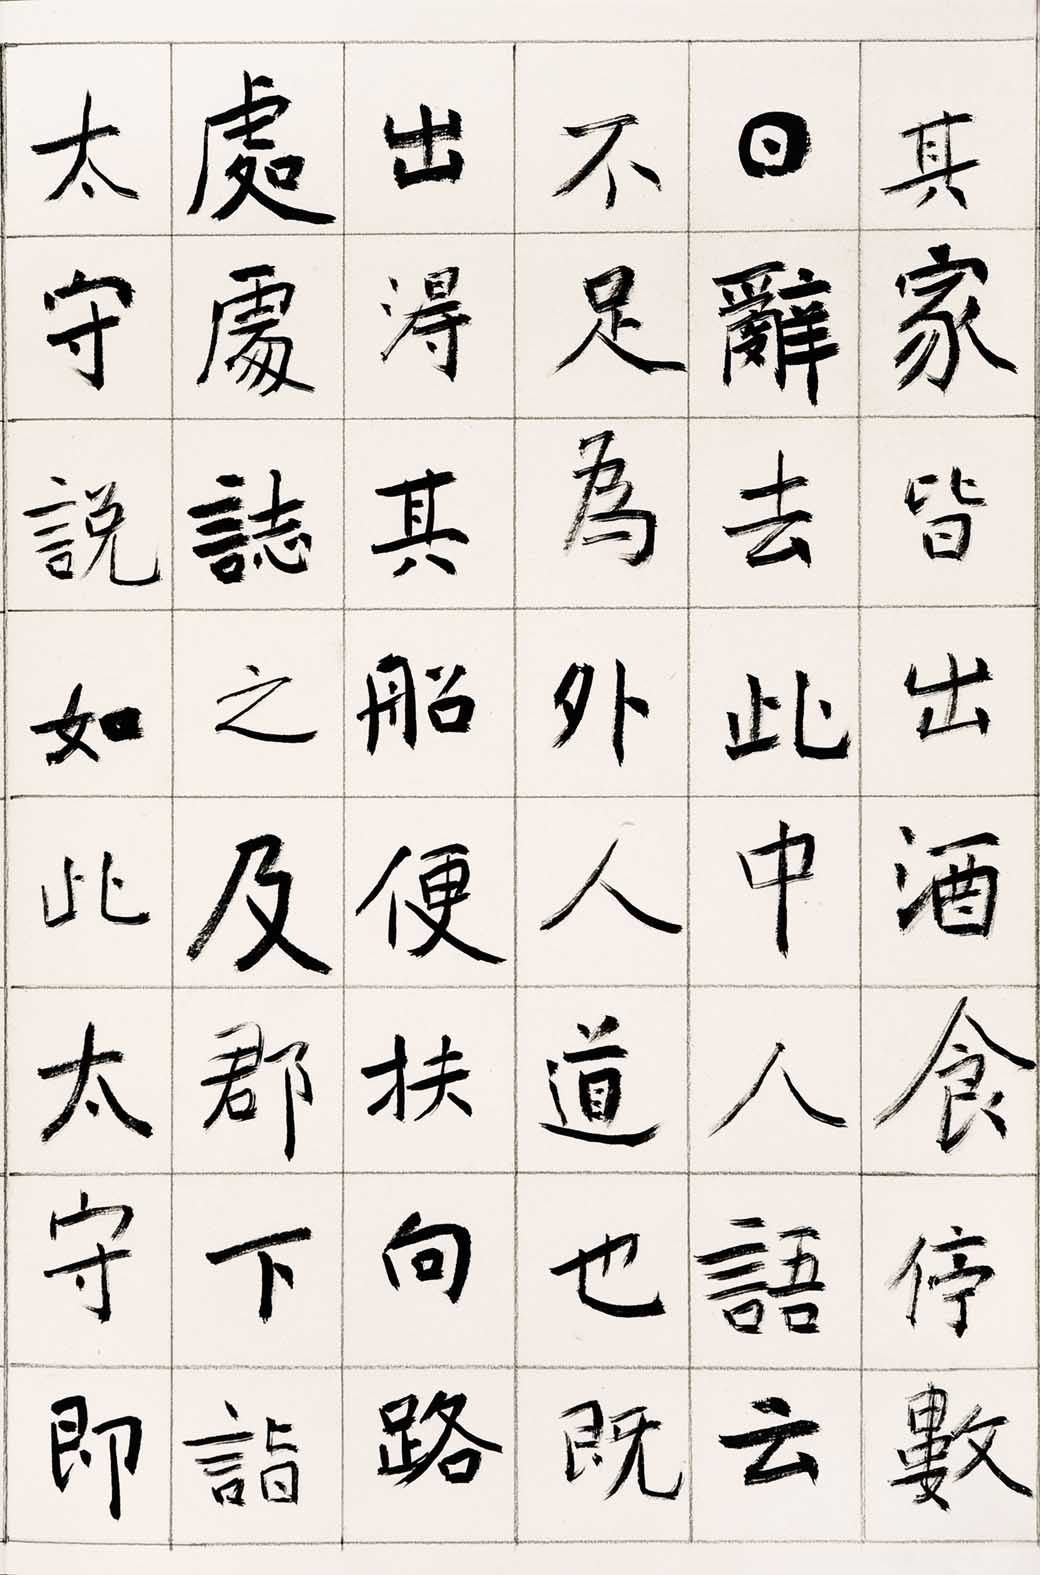 其家皆出酒食停數
日辭去此中人語云
不足為外人道也既
出得其船便扶向路
處處誌之及郡下詣
太守說如此太守即